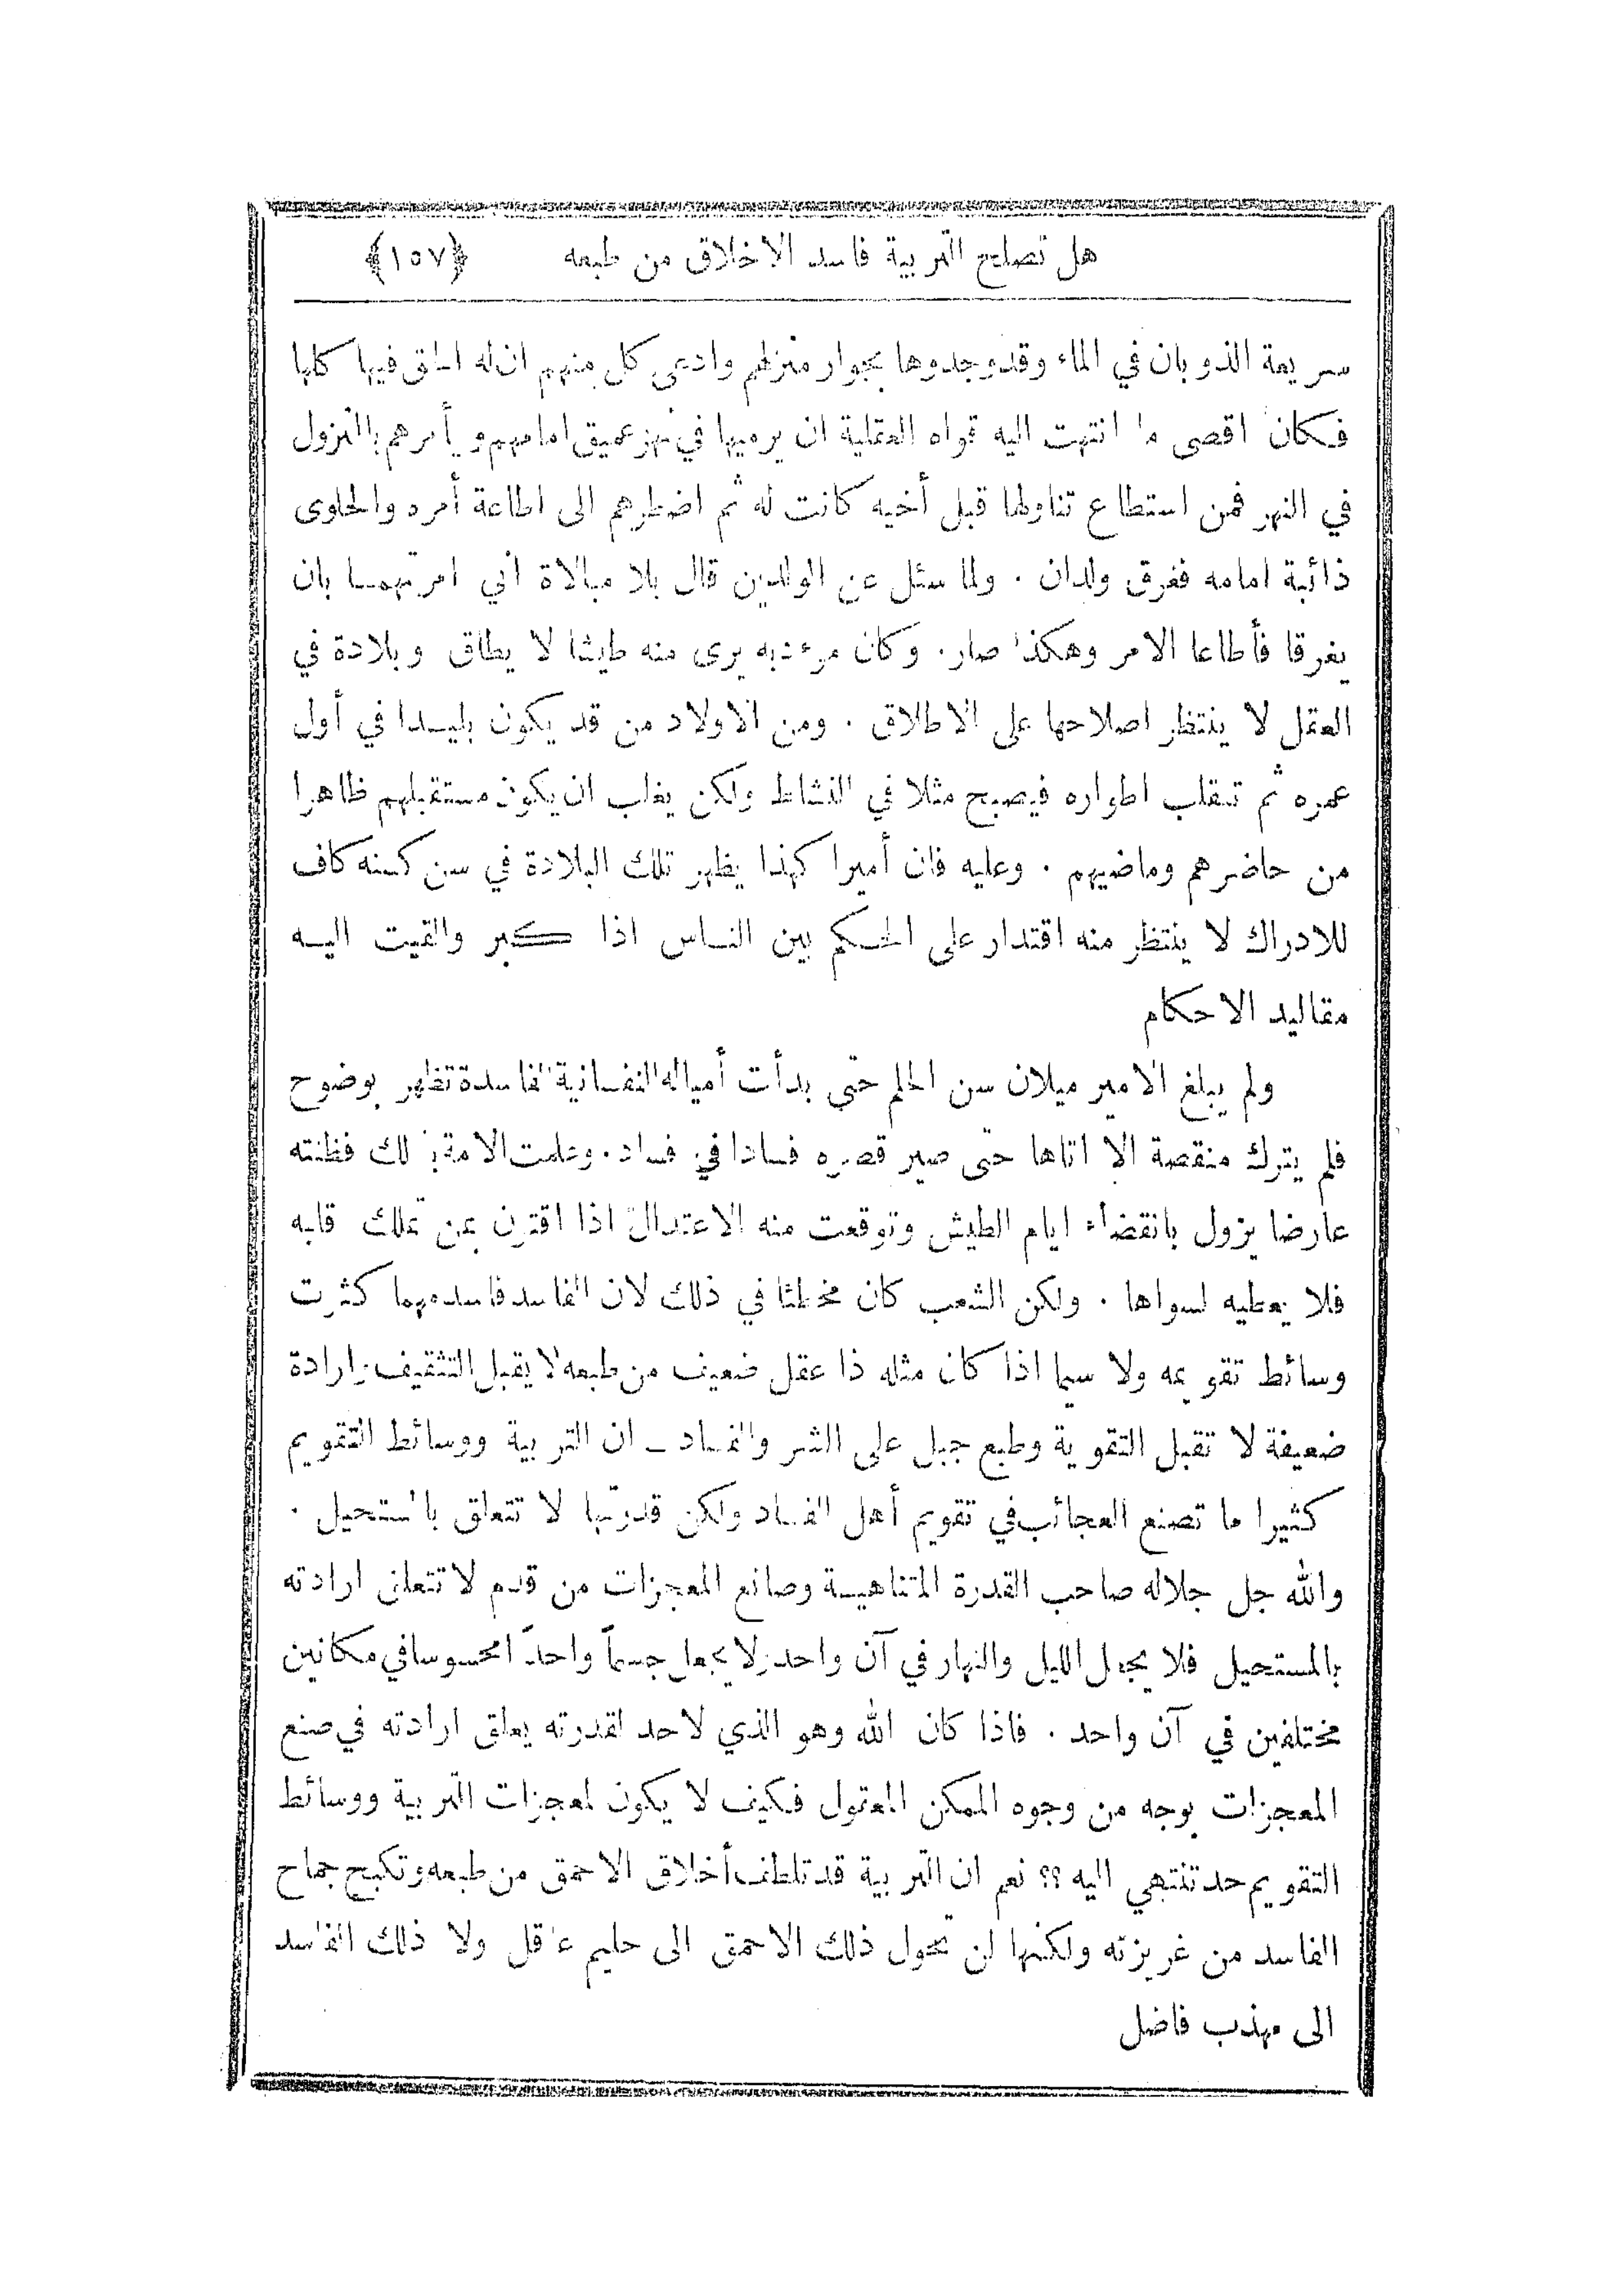 هل تصلح التربية فاسد الاخلاق من طبعه ﴿١٥٧﴾
سريعة الذوبان في الماء وقد وجدوها بجوار منزلهم وادعى كل منهم ان له الحق فيها كلها
فكان اقصى ما انتهت اليه قواه العقلية ان يرميها في نهر عميق امامهم ويأمرهم بالنزول
في النهر فمن استطاع تناولها قبل أخيه كانت له ثم اضطرهم الى اطاعة أمره والحلوى
ذائبة امامه فغرق ولدان . ولما سئل عن الولدين قال بلا مبالاة اني امرتهمـا بان
يغرقا فأطاعا الامر وهكذا صار. وكان مؤدبه يرى منه طيشا لا يطاق وبلادة في
العقل لا ينتظر اصلاحها على الاطلاق . ومن الاولاد من قد يكون بليـدا في أول
عمره ثم تنقلب اطواره فيصبح مثلا في النشاط ولكن يغلب ان يكون مستقبلهم ظاهرا
من حاضرهم وماضيهم . وعليه فان أميرا كهذا يظهر تلك البلادة في سن كسنه كاف
للادراك لا ينتظر منه اقتدار على الحـكم بين النـاس اذا كـبر والقيت اليـه
مقاليد الاحكام
ولم يبلغ الامير ميلان سن الحلم حتى بدأت أمياله النفسانية الفاسدة تظهر بوضوح
فلم يترك منقصة الا اتاها حتى صير قصره فسادا في فساد . وعلمت الامة بذلك فظنته
عارضا يزول بانقضاء ايام الطيش وتوقعت منه الاعتدال اذا اقترن بمن تملك قلبه
فلا يعطيه لسواها . ولكن الشعب كان مخطئا في ذلك لان الفاسد فاسد مهما كثرت
وسائط تقويمه ولا سيما اذا كان مثله ذا عقل ضعيف من طبعه لا يقبل التثقيف وارادة
ضعيفة لا تقبل التقوية وطبع جبل على الشر والفساد ـ ان التربية ووسائط التقويم
كثيرا ما تصنع العجائب في تقويم أهل الفساد ولكن قدرتها لا تتعلق بالمستحيل .
والله جل جلاله صاحب القدرة المتناهيـة وصانع المعجزات من قدم لا تتعلق ارادته
بالمستحيل فلا يجعل الليل والنهار في آن واحد ولا يجعل جسماً واحداً محسوسا في مكانين
مختلفين في آن واحد . فاذا كان الله وهو الذي لا حد لقدرته يعلق ارادته في صنع
المعجزات بوجه من وجوه الممكن المعقول فكيف لا يكون لمعجزات التربية ووسائط
التقويم حد تنتهي اليه ؟؟ نعم ان التربية قد تلطف أخلاق الاحمق من طبعه وتكبح جماح
الفاسد من غريزته ولكنها لن تحول ذلك الاحمق الى حليم عاقل ولا ذلك الفاسد
الى مهذب فاضل